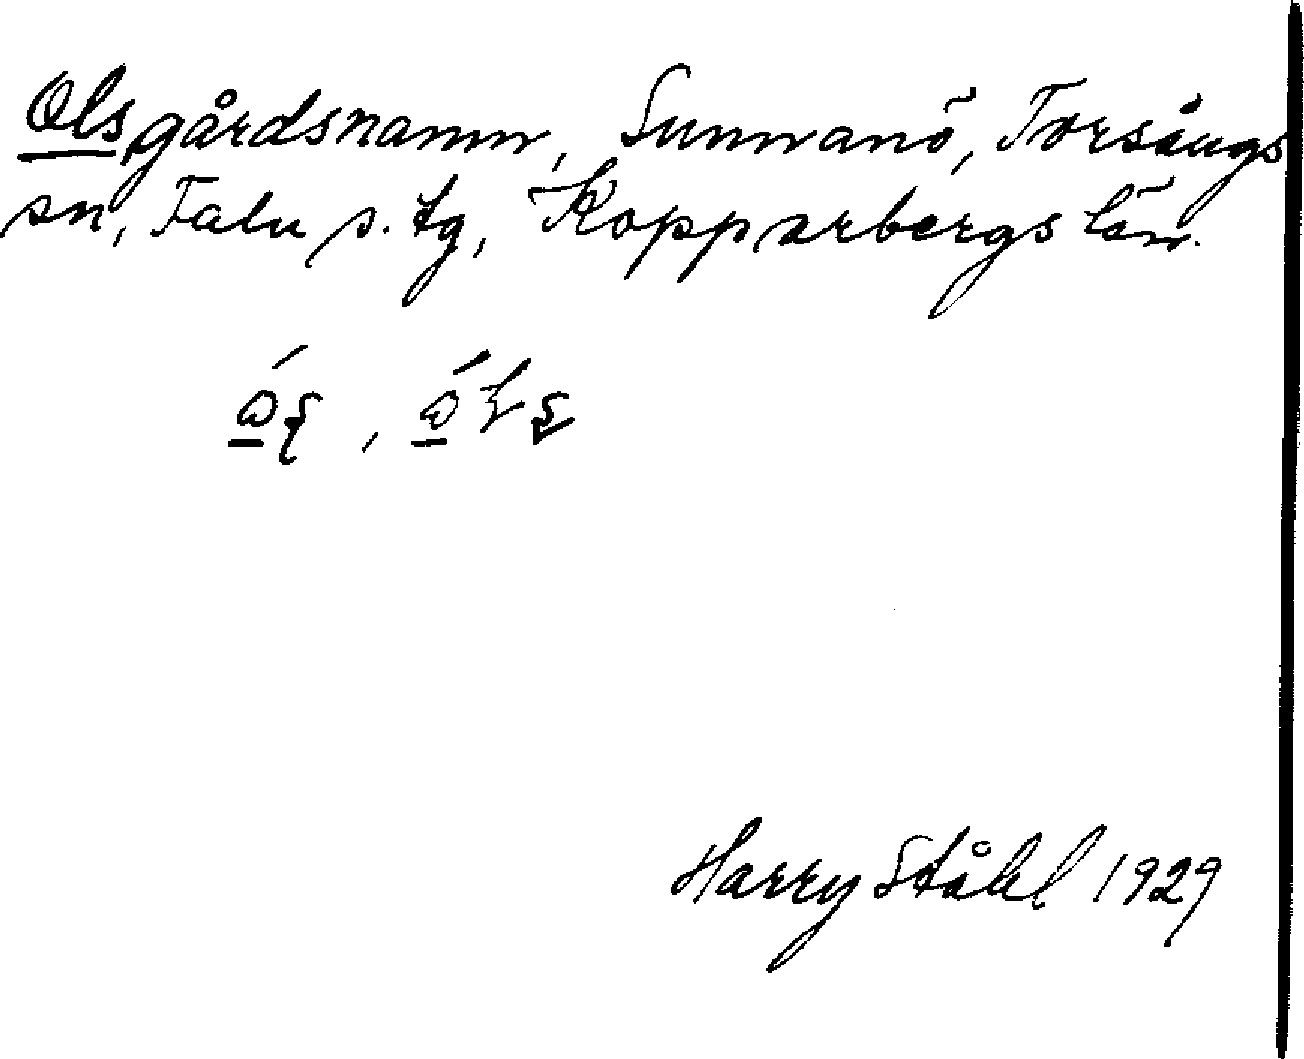 Ols, gårdsnamn, Sunnanö, Torsångs
sn, Falu s. tg, Kopparbergs län.
Harry Ståhl 1929